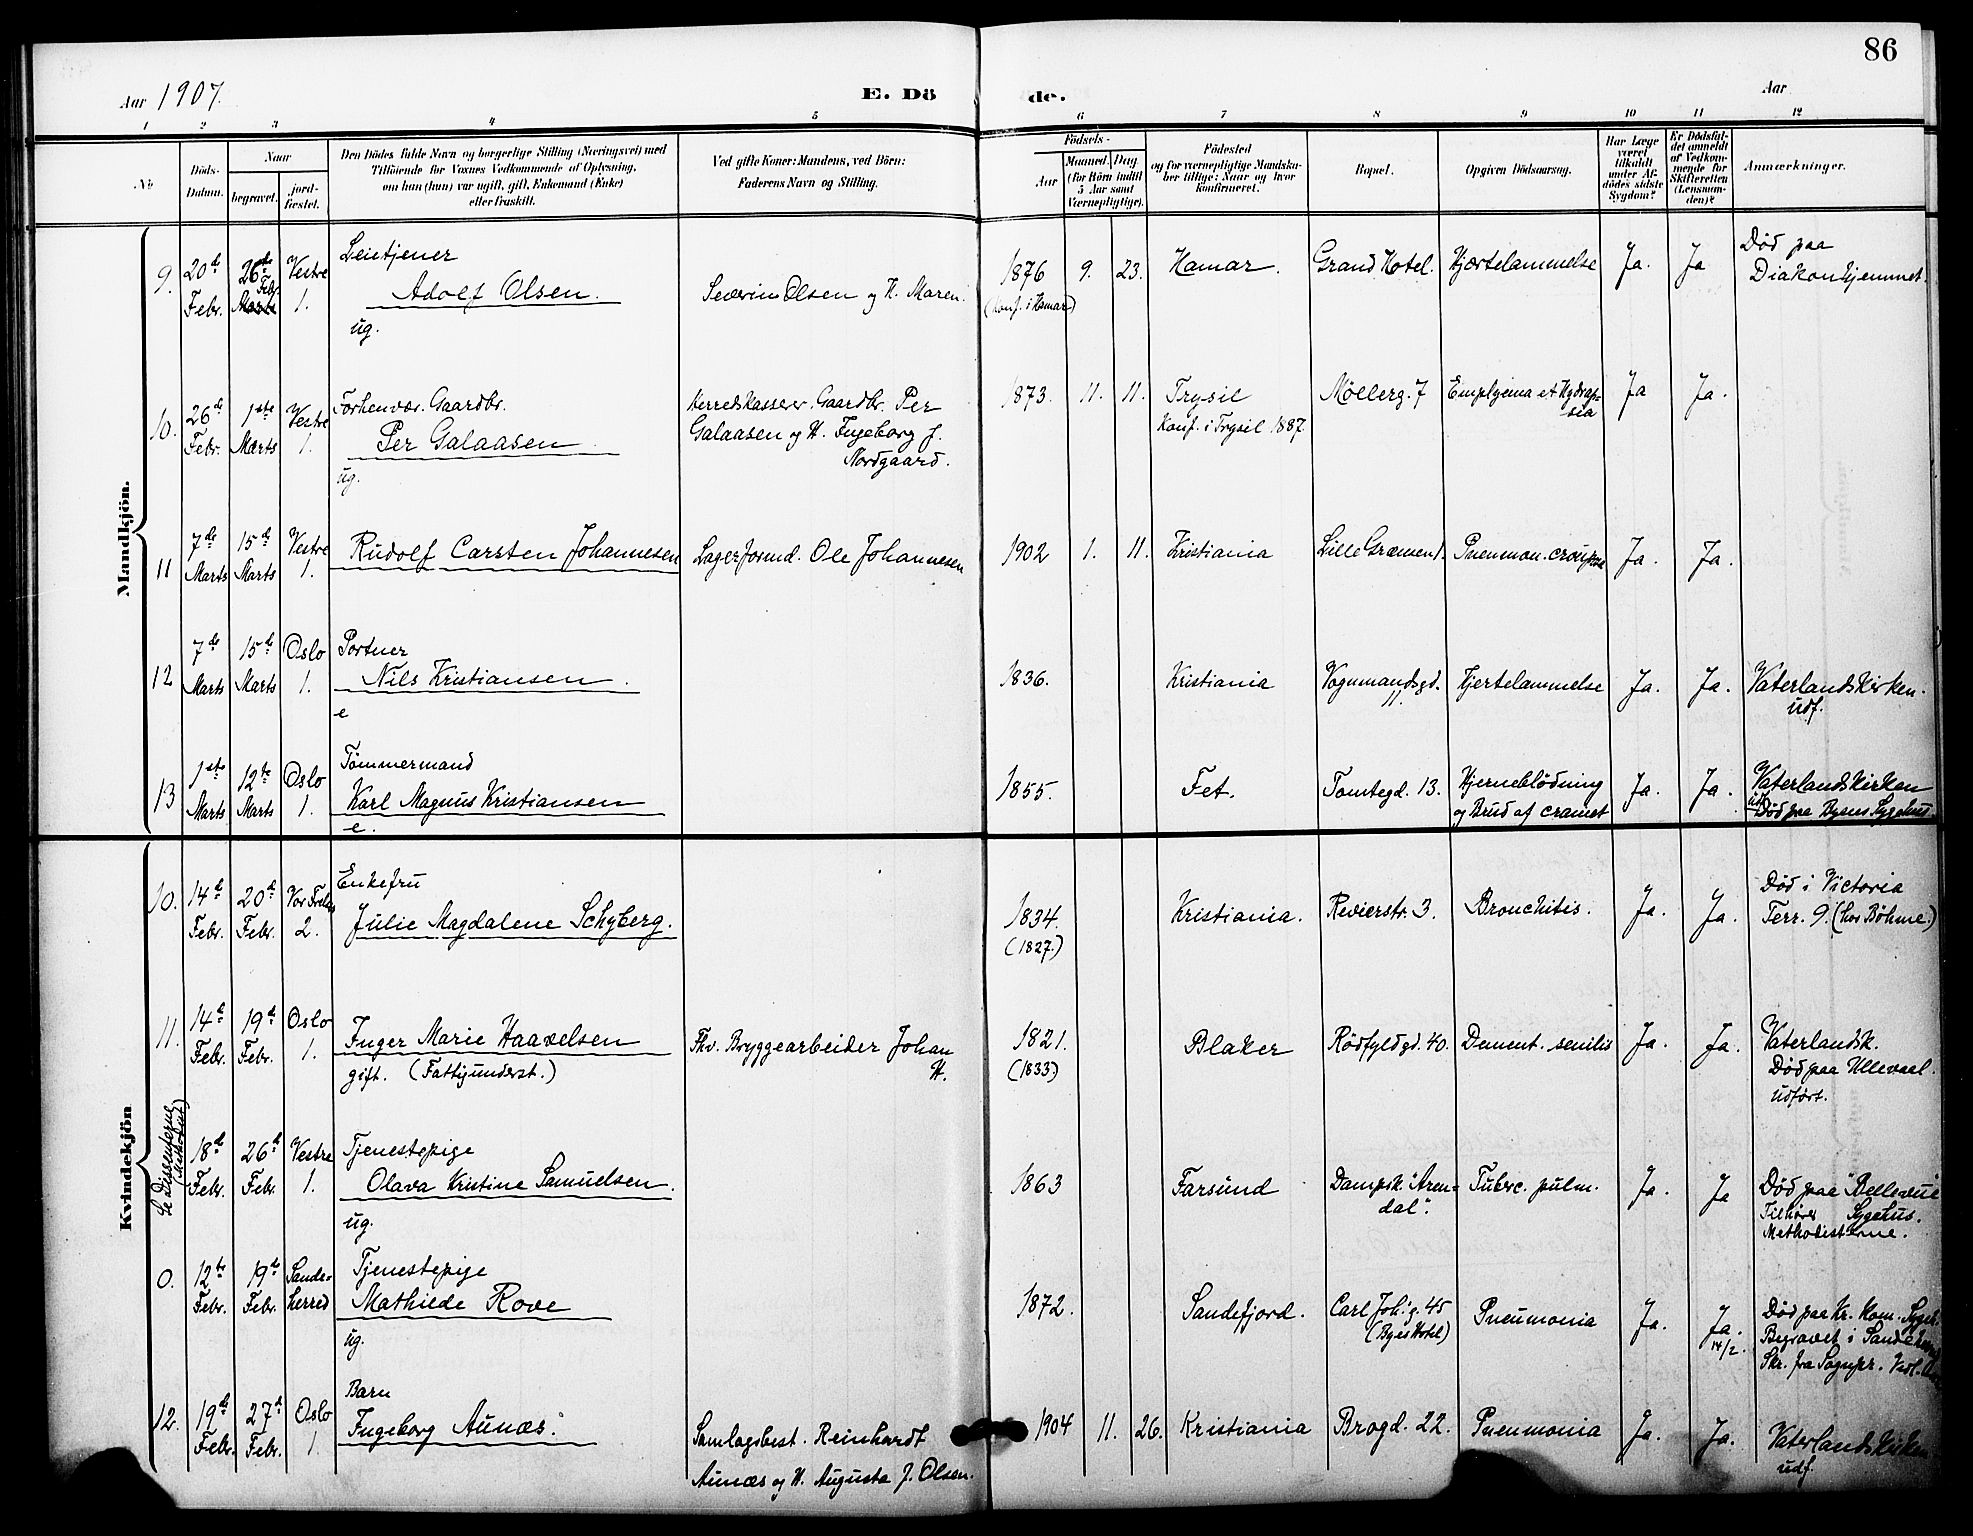 86
Aar 1907.
E. Dö de.
Aar
1 2 3 4 5 6 7 8 9 10 11 12
No
Döds-
Datum.
Naar
begravet.
jord-
fæstet.
Den Dödes fulde Navn og borgerlige Stilling (Næringsvei) med
Tilföiende for Voxnes Vedkommende af Oplysning,
om han (hun) var ugift, gift, Enkemand (Enke)
eller fraskilt.
Ved gifte Koner: Mandens, ved Börn:
Faderens Navn og Stilling.
Födsels-
Aar
Maaned. Dag
(for Börn indtil
5 Aar samt
Værnepligtige).
Födested
og for værnepligtige Mandska-
ber tillige: Naar og hvor
konfirmeret.
Bopæl.
Opgiven Dödsaarsag.
Har Læge
været
tilkaldt
under Af-
dödes sidste
Sygdom?
Er Dödsfal-
det anmeldt
af Vedkom-
mende for
Skifteretten
(Lensman-
den)?
Anmærkninger.
Mandkjön.
9.
20de
Febr.
26de
Febr.
Marts
Vestre
1.
Leietjener
Adolf Olsen.
ug.
Severin Olsen og H. Maren.
1876 9. 23.
(Konf. i Hamar)
Hamar.
Grand Hotel.
Hjærtelammelse
Ja. Ja
Død paa
Diakonhjemmet.
10.
26de
Febr.
1ste
Marts
Vestre
1.
Forhenvær. Gaardbr.
Per Galaasen
ug.
Herredskasserer. Gaardbr. Per
Galaasen og H. Ingeborg f.
Nordgaard.
1873. 11. 11.
Trysil
Konf. i Trysil 1887.
Møllerg. 7
Emplyema et Hydrop-
sia
Ja Ja.
11
7de
Marts
15de
Marts
Vestre
1.
Rudolf Carsten Johannesen
Lagerformd. Ole Johannesen
1902 1. 11.
Kristiania
Lille Grænsen 1.
Pneumon. crouposa
Ja. Ja.
12
7de
Marts
15de
Marts
Oslo
1.
Portner
Nils Kristiansen.
e
1836.
Kristiania
Vognmandsgd.
11.
Hjertelammelse
Ja. Ja.
Vaterlandskirken.
udf.
13
1ste
Marts
12te
Marts
Oslo
1.
Tømmermand
Karl Magnus Kristiansen
e.
1855.
Fet.
Tomtegd. 13.
Hjerneblödning
og Brud af craniet
Ja. Ja.
Vaterlandskirken
udf.
Død paa Byens Sygehus.
Kvindekjön
10.
14de
Febr.
20de
Febr.
Vor Frels
2.
Enkefru
Julie Magdalene Schyberg.
1834.
(1827.)
Kristiania.
Revierstr. 3.
Bronchitis.
Ja. Ja.
Død i Victoria
Terr. 9. (hos Böhme.)
11.
14de
Febr.
19de
Febr.
Oslo
1.
Inger Marie Haavelsen
gift. (Fattigunderst.)
Fhv. Bryggearbeider Johan
H.
1821.
(1833)
Blaker
Rödfyldgd. 40.
Dement. senilis
Ja. Ja.
Vaterlandsk.
Død paa Ullevaal.
udført.
Se Dissenterne
(Methodist)
18de
Febr.
26de
Febr.
Vestre
1.
Tjenestepige
Olava Kristine Samuelsen.
ug.
1863
Farsund
Dampsk. "Aren-
dal".
Tuberc. pulm.
Ja. Ja
Død paa "Bellevue"
Tilhører Sygehus.
Methodisterne.
0.
12te
Febr.
19de
Febr.
Sande-
herred
Tjenestepige
Mathilde Rove
ug.
1872.
Sandefjord.
Carl Joh. g. 45
(Byes Hotel)
Pneumonia
Ja. Ja.
14/2.
Død paa Kr. Kom. Sygeh.
Begravet i Sandeherred
Skr. fra Sognepr.
12.
19de
Febr.
27de
Febr.
Oslo
1.
Barn
Ingeborg Aunæs.
Samlagsbest. Reinhardt
Aunæs og H. Augusta f. Olsen.
1904 11. 26.
Kristiania
Brogd. 22.
Pneumonia
Ja. Ja.
Vaterlandskirken
udf.